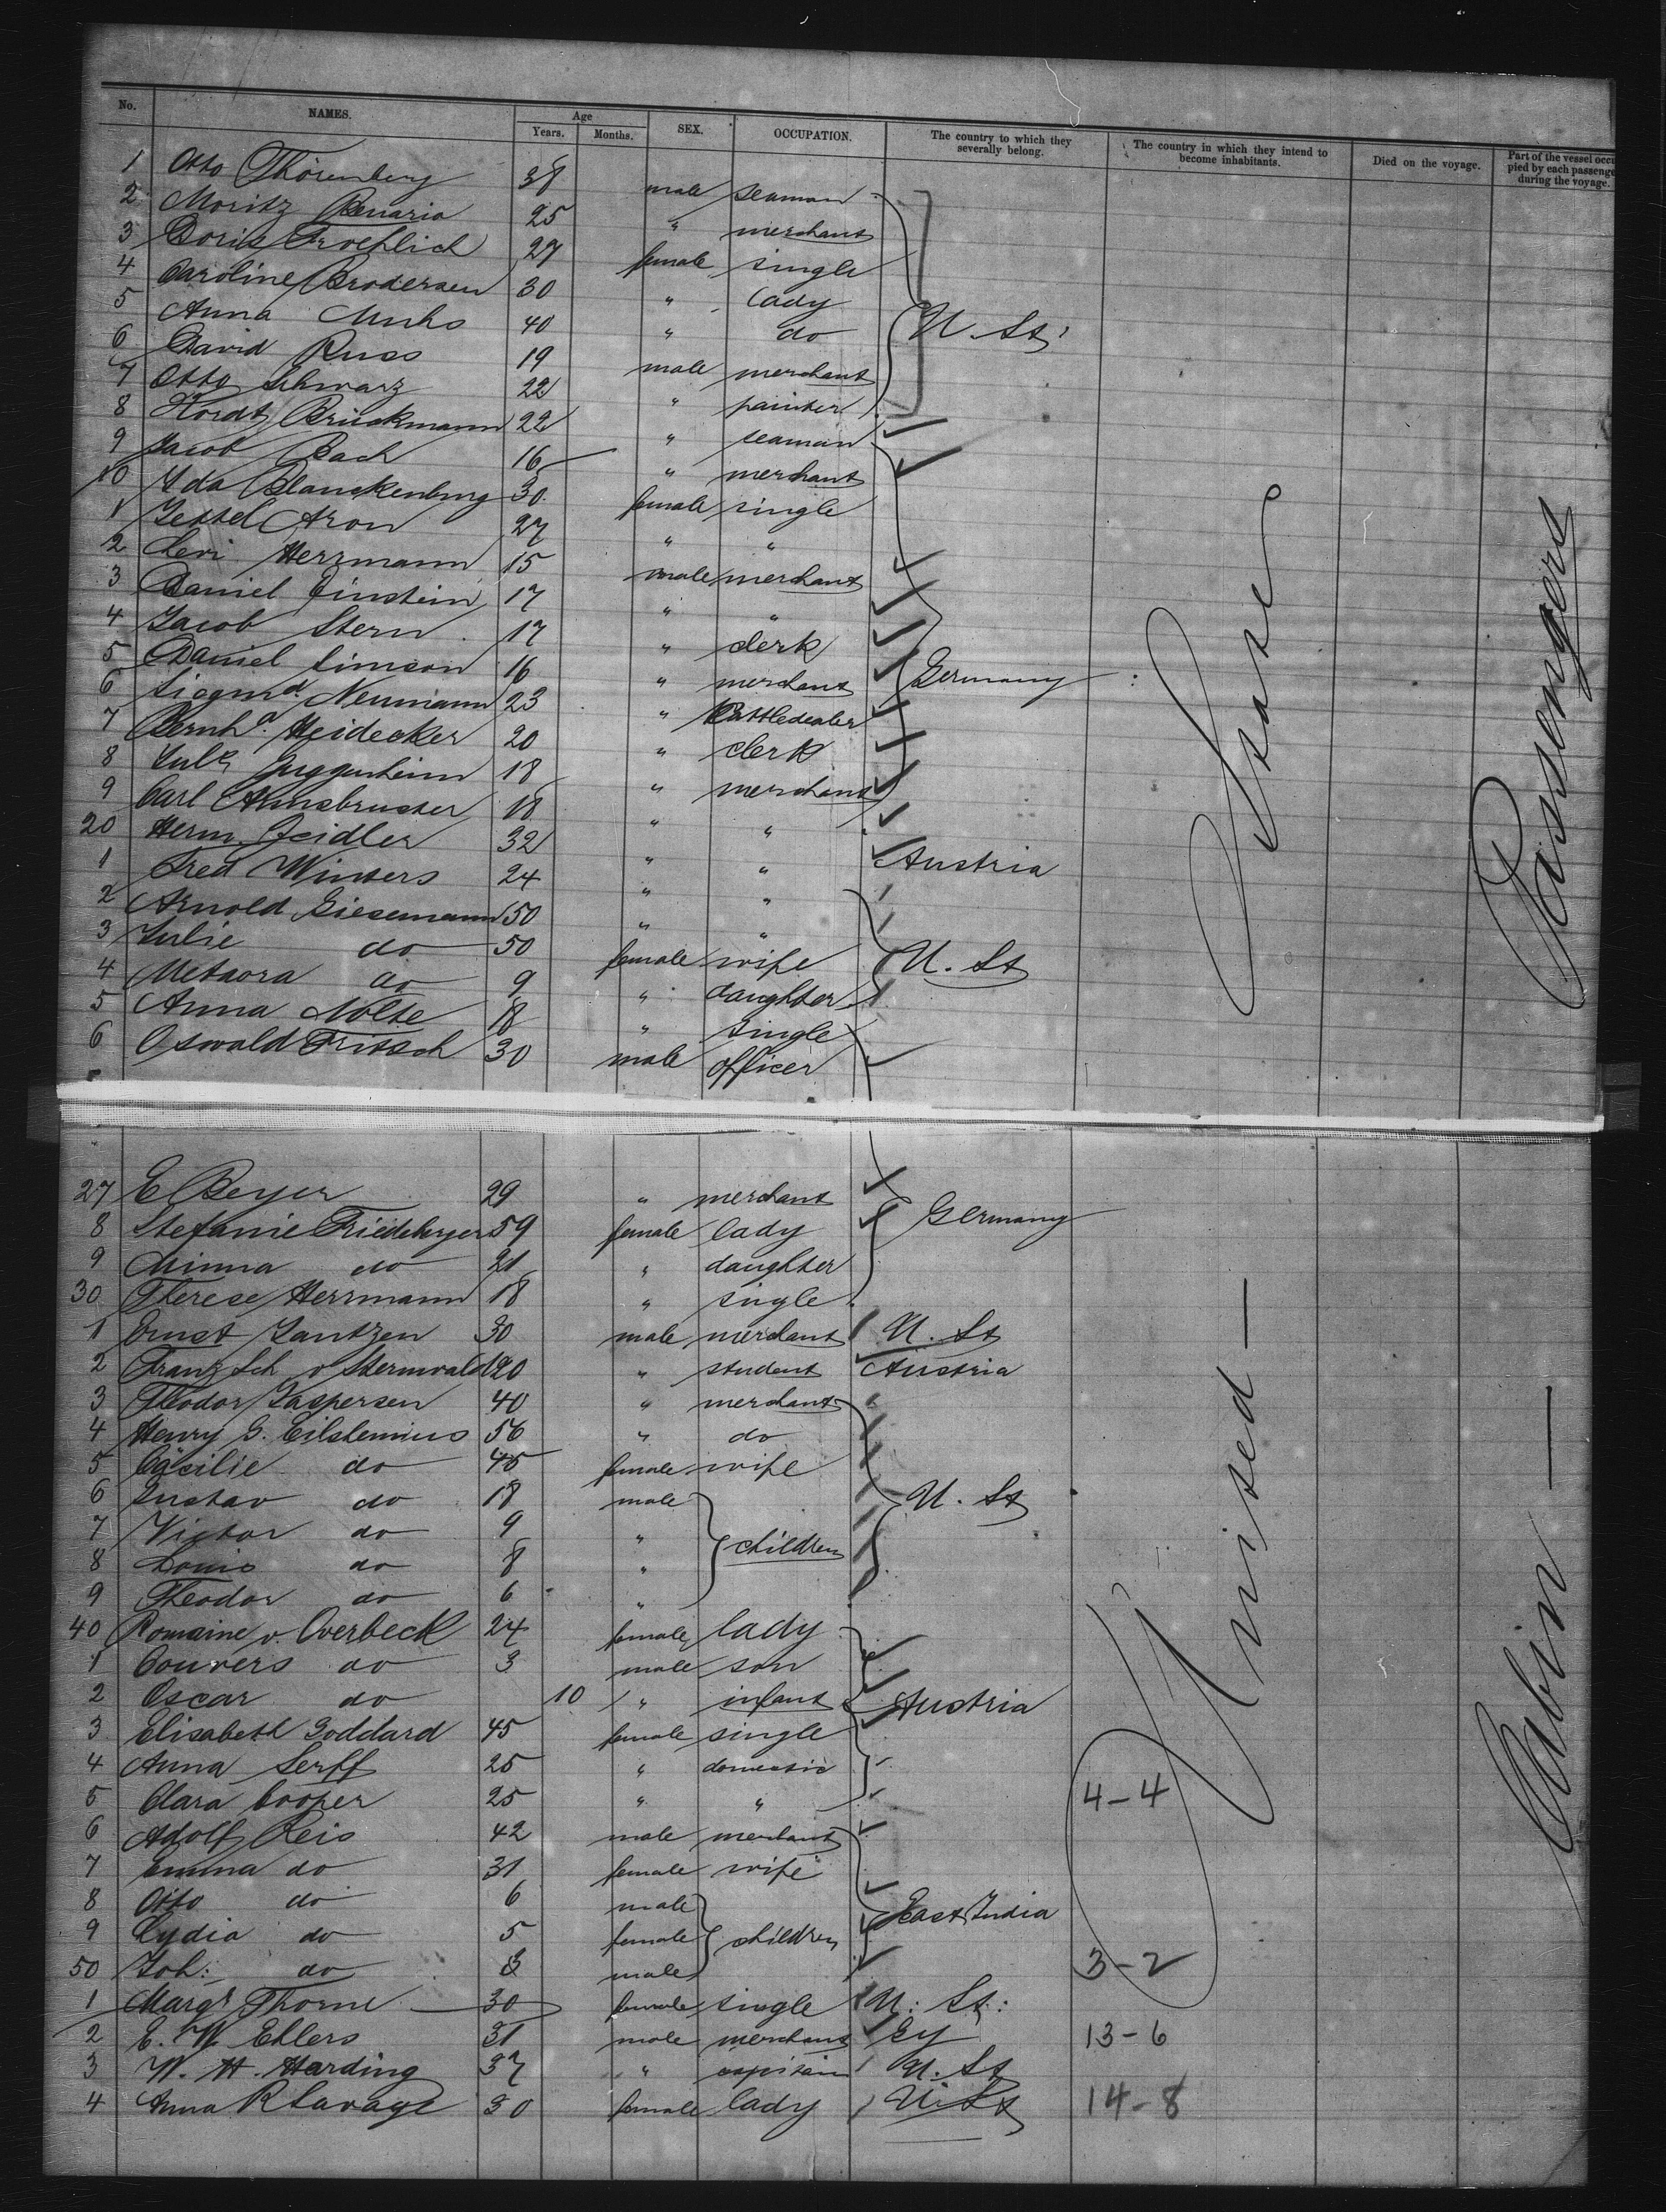 No. NAMES. Age Years. Months. SEX. OCCUPATION. The country to which they severally belong. The country in which they intend to become inhabitants. Died on the voyage. Part of the vessel occupied by each passenger during the voyage.
1 Otto Thörenberg 38 male seaman
2 Moritz Benario 25 " merchant
3 Doris Froehlich 27 female single
4 Caroline Brodersen 30 " lady
5 Anna 40 " do U. St.
6 David Russ 19 male merchant
7 Otto Schwarz 22 " painter
8 Brückmann 22 " seaman
9 Jacob Bach 16 " merchant
10 Ida Blanckenburg 30 female single
1 Aron 27 " "
2 Levi Herrmann 15 male merchant
3 Daniel Einstein 17 " "
4 Jacob Stern 17 " clerk
5 Daniel Simson 16 " merchant Germany
6 Siegmd. Neumann 23 " Cattledealer
7 Bernhd. Heidecker 20 " clerk
8 Guggenheim 18 " merchant
9 Carl Armbruster 18 " "
20 Herm. Zeidler 32 " " Austria
1 Fred Winters 24 " "
2 Arnold Giesemann 50 " "
3 Julie do 50 female wife U. St
4 Metaora do 9 " daughter
5 Anna Nolte 18 " single
6 Oswald Fritsch 30 male officer
27 E Beyer 29 " merchant
8 Stefanie Friedeberger 59 female lady Germany
9 Minna do 21 " daughter
30 Therese Herrmann 18 " single
1 Ernst Jantzen 30 male merchant U. St
2 Franz Sch v Sternwald 20 " student Austria
3 Theodor Jaspersen 40 " merchant
4 Henry G. Eilshemius 56 " do
5 Cäcilie do 45 female wife
6 Gustav do 18 male U. St
7 Victor do 9 " children
8 Louis do 8 "
9 Theodor do 6 "
40 Romaine v. Overbeck 24 female lady
1 Convers do 3 male son
2 Oscar do 10 " infant Austria
3 Elisabeth Goddard 45 female single
4 Anna Serff 25 " domestic
5 Clara Cooper 25 " " 4-4
6 Adolf Reis 42 male merchant
7 Emma do 31 female wife
8 Otto do 6 male East India
9 Lydia do 5 female children
50 Joh: do 3 male 3-2
1 Margt Thorne 30 female single U: St:
2 E. W. Ehlers 31 male merchant Gy 13-6
3 W. H. Harding 37 " capitain U. St
4 Anna R Savage 30 female lady U. St 14-8
United — States
Cabin — Passengers